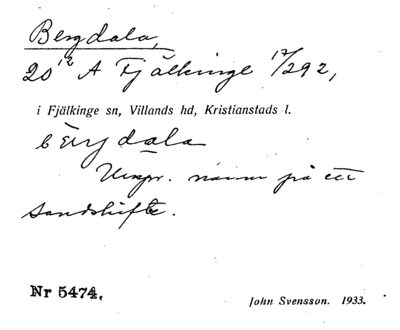 Bergdala,
20¹² A Fjälkinge 17/292,
i Fjälkinge sn, Villands hd, Kristianstads l.
Urspr. namn på ett
sandskifte.
Nr 5474.
John Svensson. 1933.